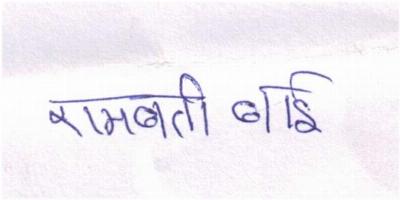 रामबती बाई